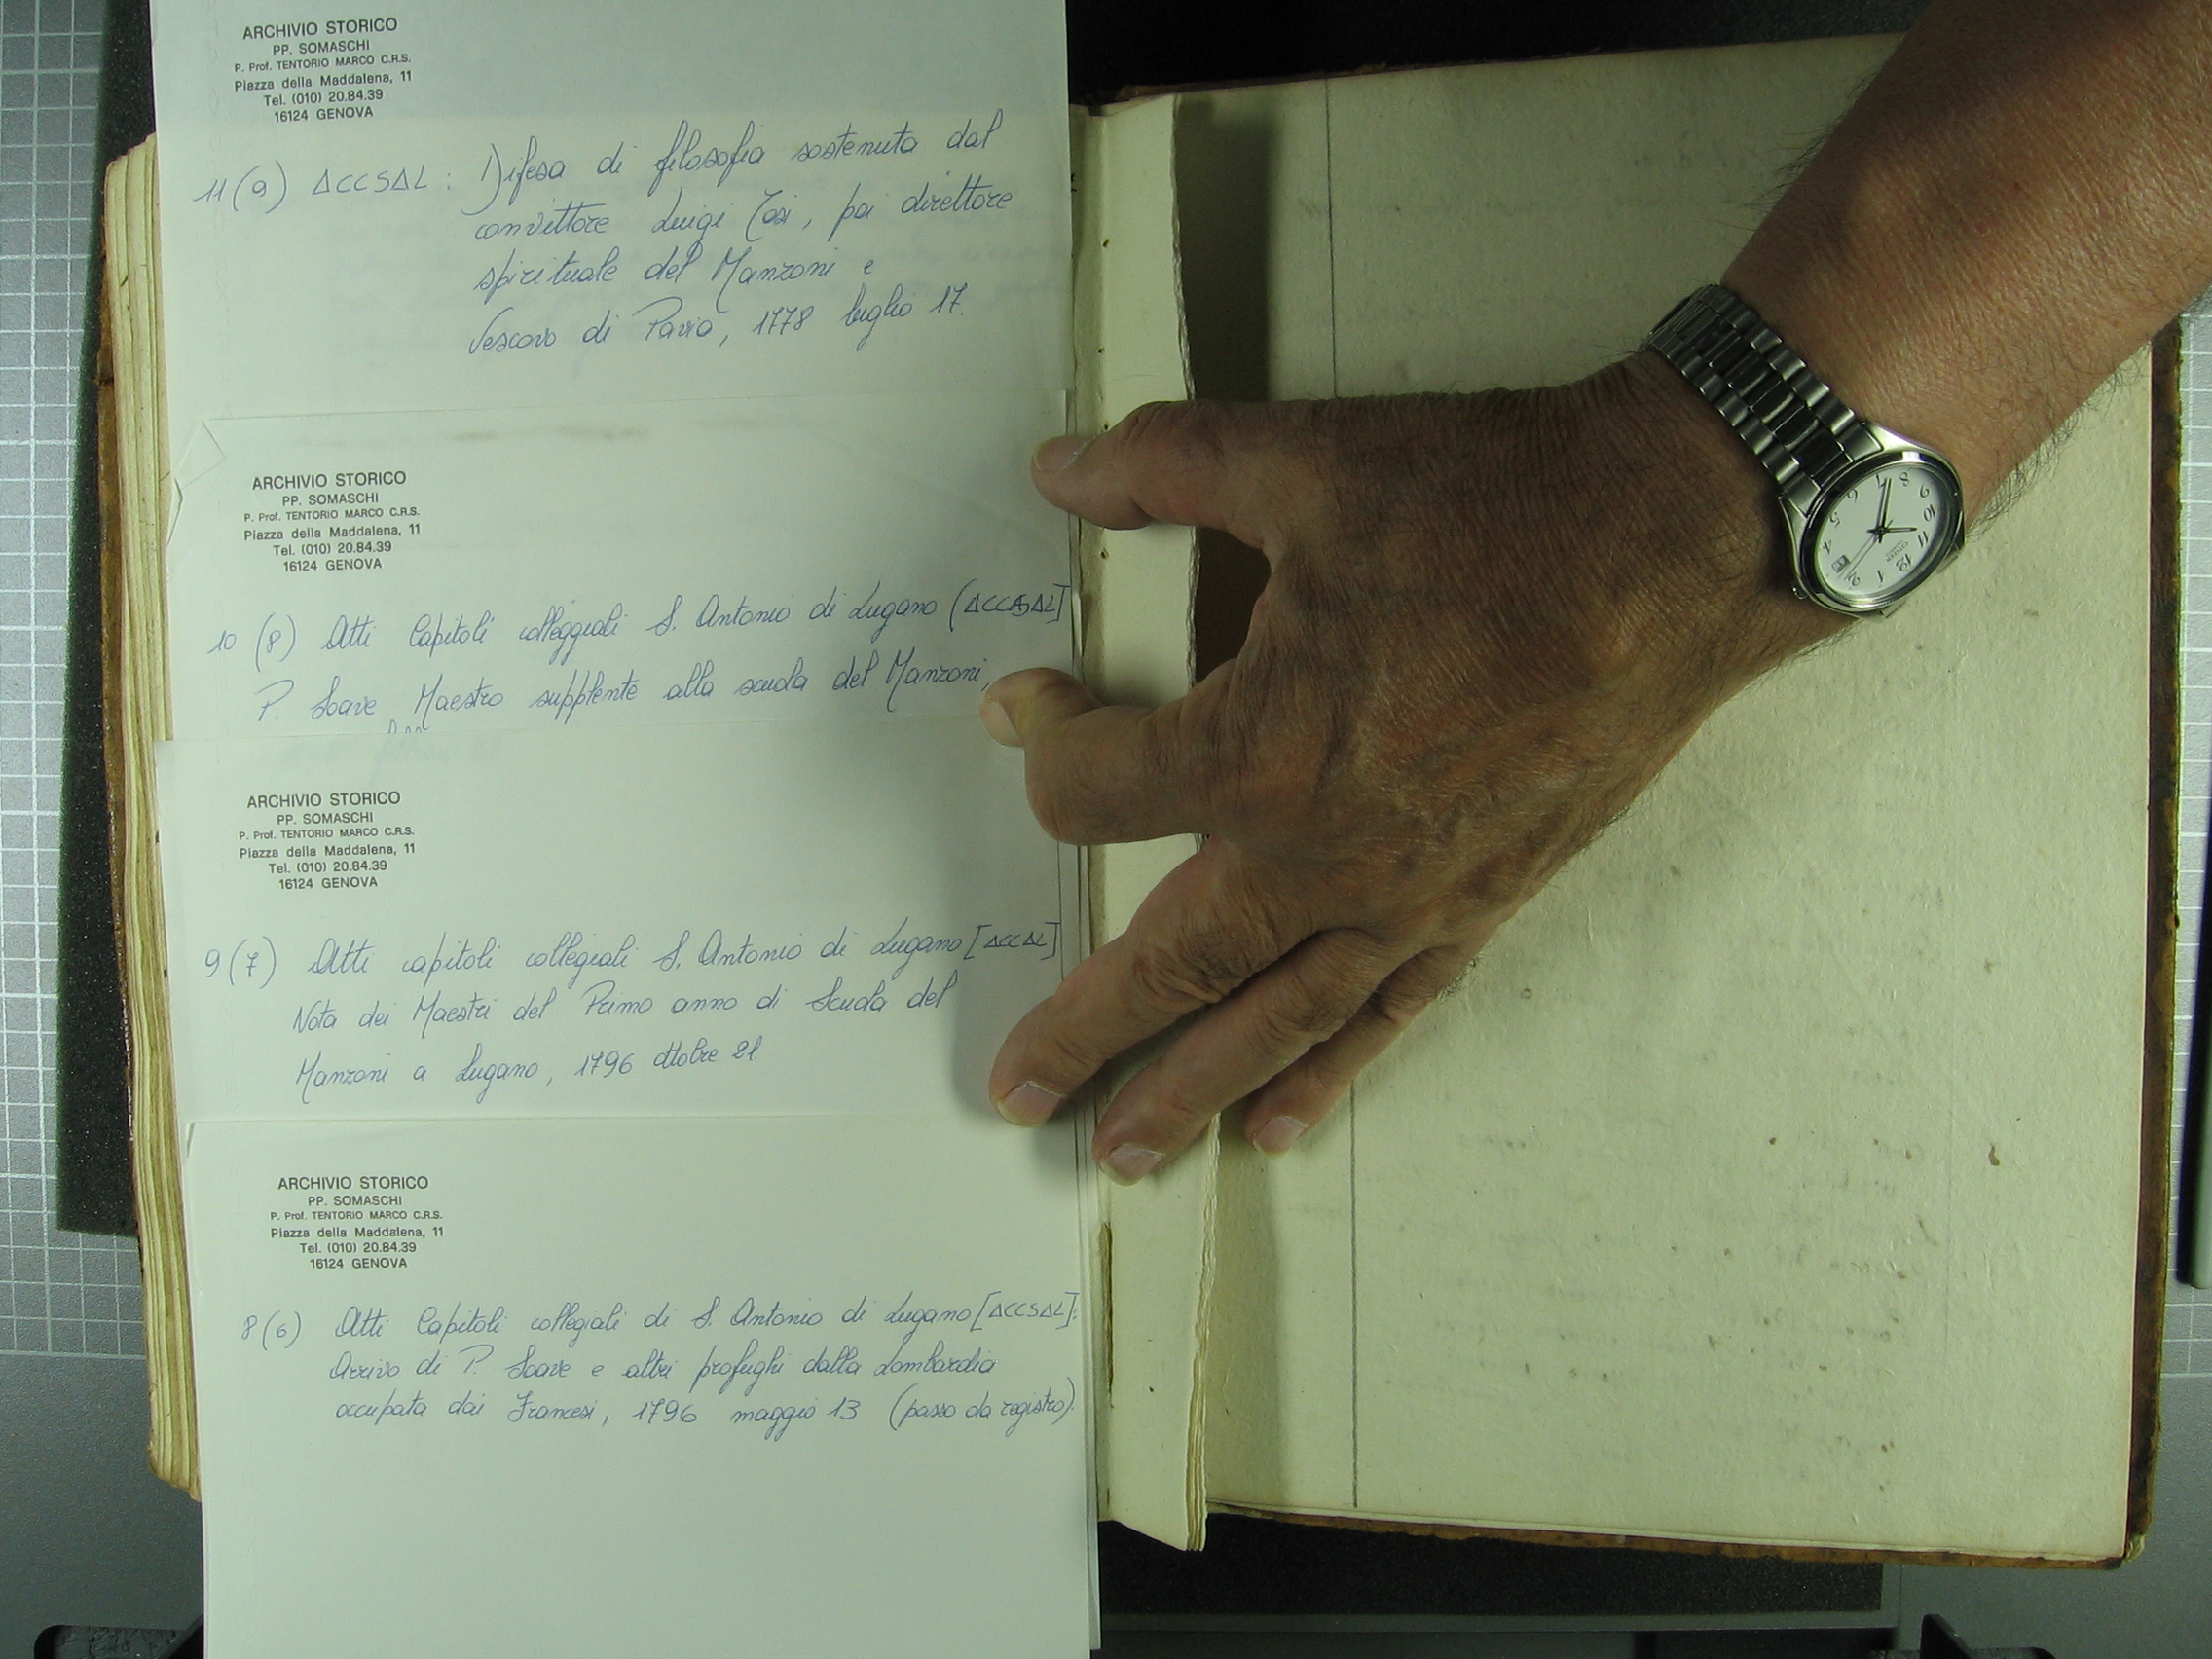 ARCHIVIO STORICO
PP. SOMASCHI
P. Prof. TENTORIO MARCO C.R.S.
Piazza della Maddalena, 11
Tel. (010) 20.84.39
16124 GENOVA
11 (9) ACCSAL : Difesa di filosofia sostenuta dal
convittore Luigi Tosi, poi direttore
spirituale del Manzoni e
Vescovo di Pavia, 1778 luglio 17.
ARCHIVIO STORICO
PP. SOMASCHI
P. Prof. TENTORIO MARCO C.R.S.
Piazza della Maddalena, 11
Tel. (010) 20.84.39
16124 GENOVA
10 (8) Atti Capitoli colleggiali S. Antonio di Lugano
P. Soave Maestro supplente alla scuola del Manzoni,
ARCHIVIO STORICO
PP. SOMASCHI
P. Prof. TENTORIO MARCO C.R.S.
Piazza della Maddalena, 11
Tel. (010) 20.84.39
16124 GENOVA
9 (7) Atti capitoli collegiali S. Antonio di Lugano [ACCAL]
Nota dei Maestri del Primo anno di Scuola del
Manzoni a Lugano, 1796 ottobre 21.
ARCHIVIO STORICO
PP. SOMASCHI
P. Prof. TENTORIO MARCO C.R.S.
Piazza della Maddalena, 11
Tel. (010) 20.84.39
16124 GENOVA
8 (6) Atti Capitoli collegiali di S. Antonio di Lugano [ACCSAL]:
Arrivo di P. Soave e altri profughi dalla Lombardia
occupata dai Francesi, 1796 maggio 13 (passo da registro).
CITIZEN